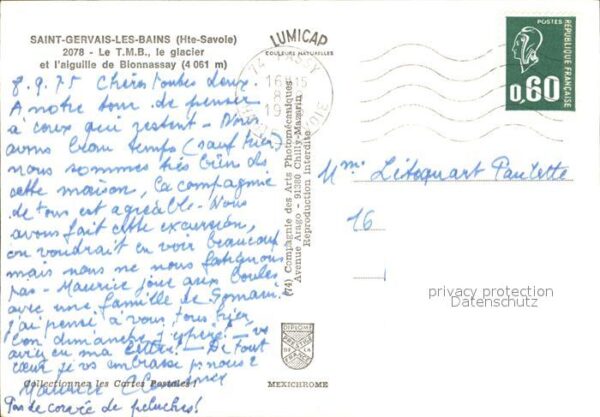 SAINT-GERVAIS-LES-BAINS (Hte-Savoie)
2078 - Le T.M.B., le glacier
et l'aiguille de Bionnassay (4 061 m)
8.9.75 Chères toutes deux.
A notre tour de penser
à ceux qui restent - Nous
avons beau temps (sauf hier)
nous sommes très bien ds
cette maison, la compagnie
de tous est agréable - Nous
avons fait cette excursion,
on voudrait en voir beaucoup
mais nous ne nous fatiguons
pas - Maurice joue aux boules
avec une famille de Somain.
j'ai pensé à vous tous hier,
bon dimanche j'espère! - vs
aviez eu ma lettre! - De tout
cœur je vs embrasse p. nous 2
Maurice
Collectionnez les Cartes Postales!
Pas de corvée de peluches!
LUMICAP
COULEURS NATURELLES
(74) Compagnie des Arts Photomécaniques
Avenue Arago - 91380 Chilly-Mazarin
Reproduction interdite
DIPLOME
PRESTIGE
DE LA
FRANCE
MEXICHROME
74 PASSY
SAVOIE
POSTES
RÉPUBLIQUE FRANÇAISE
0,60
Mme Litocquart Paulette
16
privacy protection
Datenschutz